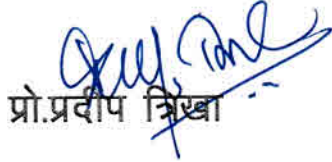 प्रो.प्रदीप त्रिखा